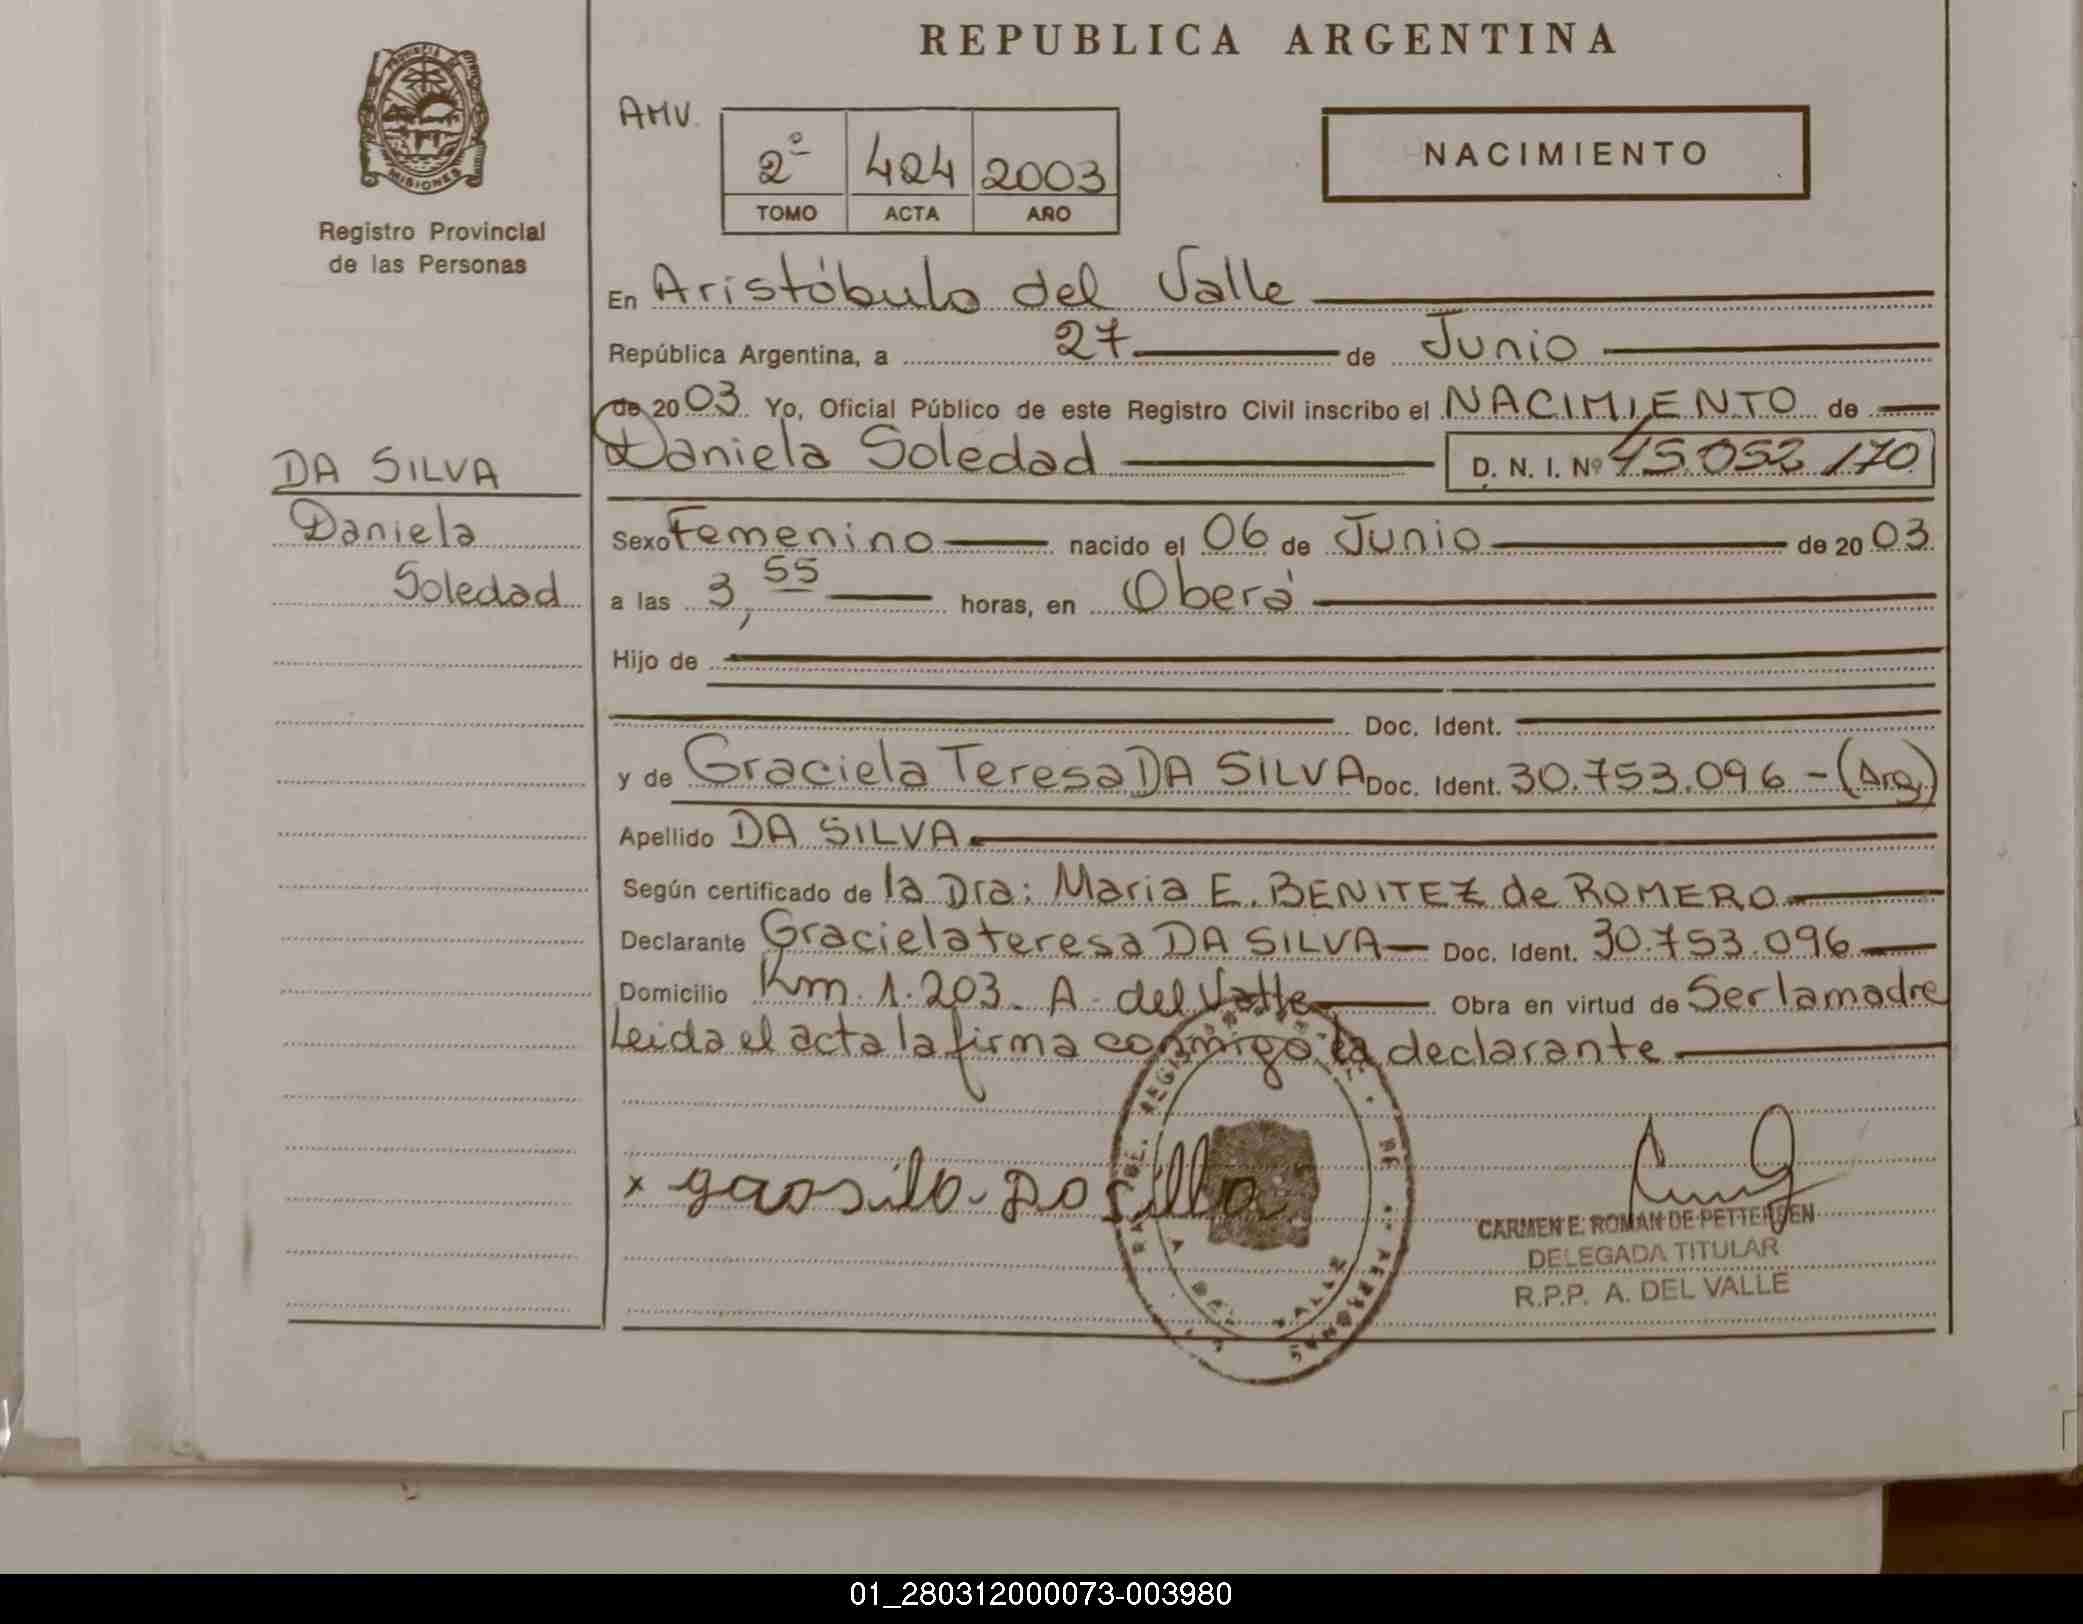 REPUBLICA ARGENTINA
PROVINCIA DE
MISIONES
Registro Provincial
de las Personas
AMV.
2º 424 2003
TOMO ACTA AÑO
NACIMIENTO
En Aristóbulo del Valle
República Argentina, a 27 de Junio
de 2003 Yo, Oficial Público de este Registro Civil inscribo el NACIMIENTO de
Daniela Soledad D. N. I. Nº 45.052.170
DA SILVA
Daniela
Soledad
Sexo Femenino nacido el 06 de Junio de 2003
a las 3,55 horas, en Oberá
Hijo de
Doc. Ident.
y de Graciela Teresa DA SILVA Doc. Ident. 30.753.096 - (Arg)
Apellido DA SILVA
Según certificado de la Dra: Maria E. BENITEZ de ROMERO
Declarante Graciela teresa DA SILVA Doc. Ident. 30.753.096
Domicilio Km. 1.203. A. del Valle Obra en virtud de Ser la madre
Leida el acta la firma conmigo la declarante
x
CARMEN E. ROMAN DE PETTERSEN
DELEGADA TITULAR
R.P.P. A. DEL VALLE
01_280312000073-003980